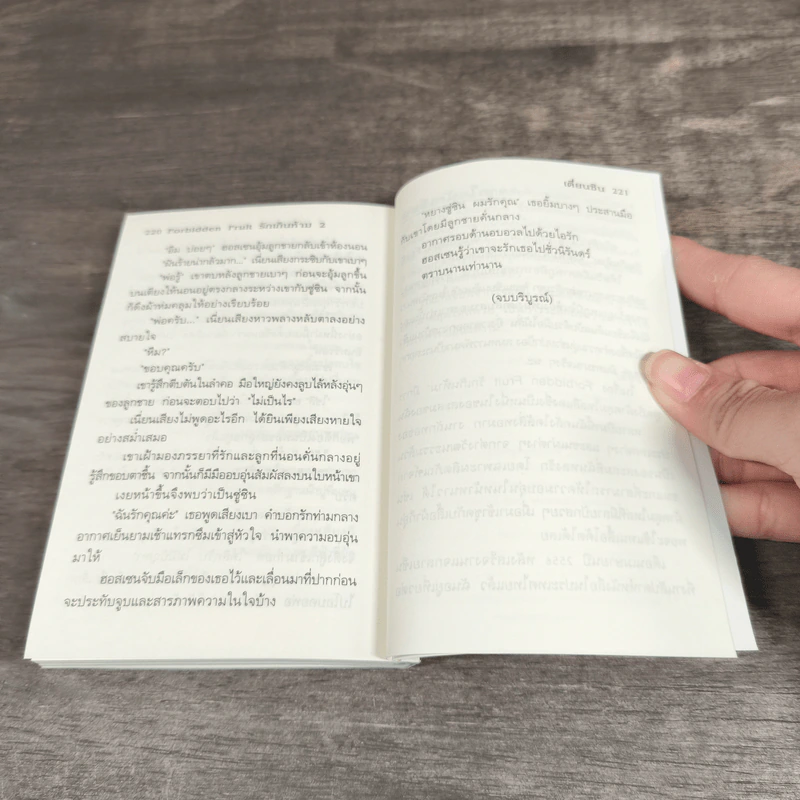 220 Forbidden Fruit รักเกินห้าม 2
"อืม บ่อยๆ" ฮอสเซนอุ้มลูกชายกลับเข้าห้องนอน
"มันร้ายน่ากลัวมาก..." เนี่ยนเสียงกระซิบกับเขาเบาๆ
"พ่อรู้" เขาตบหลังลูกชายเบาๆ ก่อนจะอุ้มลูกขึ้น
บนเตียงให้นอนอยู่ตรงกลางระหว่างเขากับซูซิน จากนั้น
ก็ดึงผ้าห่มคลุมให้อย่างเรียบร้อย
"พ่อครับ..." เนี่ยนเสียงหาวพลางหลับตาลงอย่าง
สบายใจ
"หืม?"
"ขอบคุณครับ"
เขารู้สึกตีบตันในลำคอ มือใหญ่ยังคงลูบไล้หลังอุ่นๆ
ของลูกชาย ก่อนจะตอบไปว่า "ไม่เป็นไร"
เนี่ยนเสียงไม่พูดอะไรอีก ได้ยินเพียงเสียงหายใจ
อย่างสม่ำเสมอ
เขาเฝ้ามองภรรยาที่รักและลูกที่นอนคั่นกลางอยู่
รู้สึกขอบตาชื้น จากนั้นก็มีมืออบอุ่นสัมผัสลงบนใบหน้าเขา
เงยหน้าขึ้นจึงพบว่าเป็นซูซิน
"ฉันรักคุณค่ะ" เธอพูดเสียงเบา คำบอกรักท่ามกลาง
อากาศเย็นยามเช้าแทรกซึมเข้าสู่หัวใจ นำพาความอบอุ่น
มาให้
ฮอสเซนจับมือเล็กของเธอไว้และเลื่อนมาที่ปากก่อน
จะประทับจูบและสารภาพความในใจบ้าง
เตี่ยนซิน 221
"หยางซูซิน ผมรักคุณ" เธอยิ้มบางๆ ประสานมือ
กับเขาโดยมีลูกชายคั่นกลาง
อากาศรอบด้านอบอวลไปด้วยไอรัก
ฮอสเซนรู้ว่าเขาจะรักเธอไปชั่วนิรันดร์
ตราบนานเท่านาน
(จบบริบูรณ์)